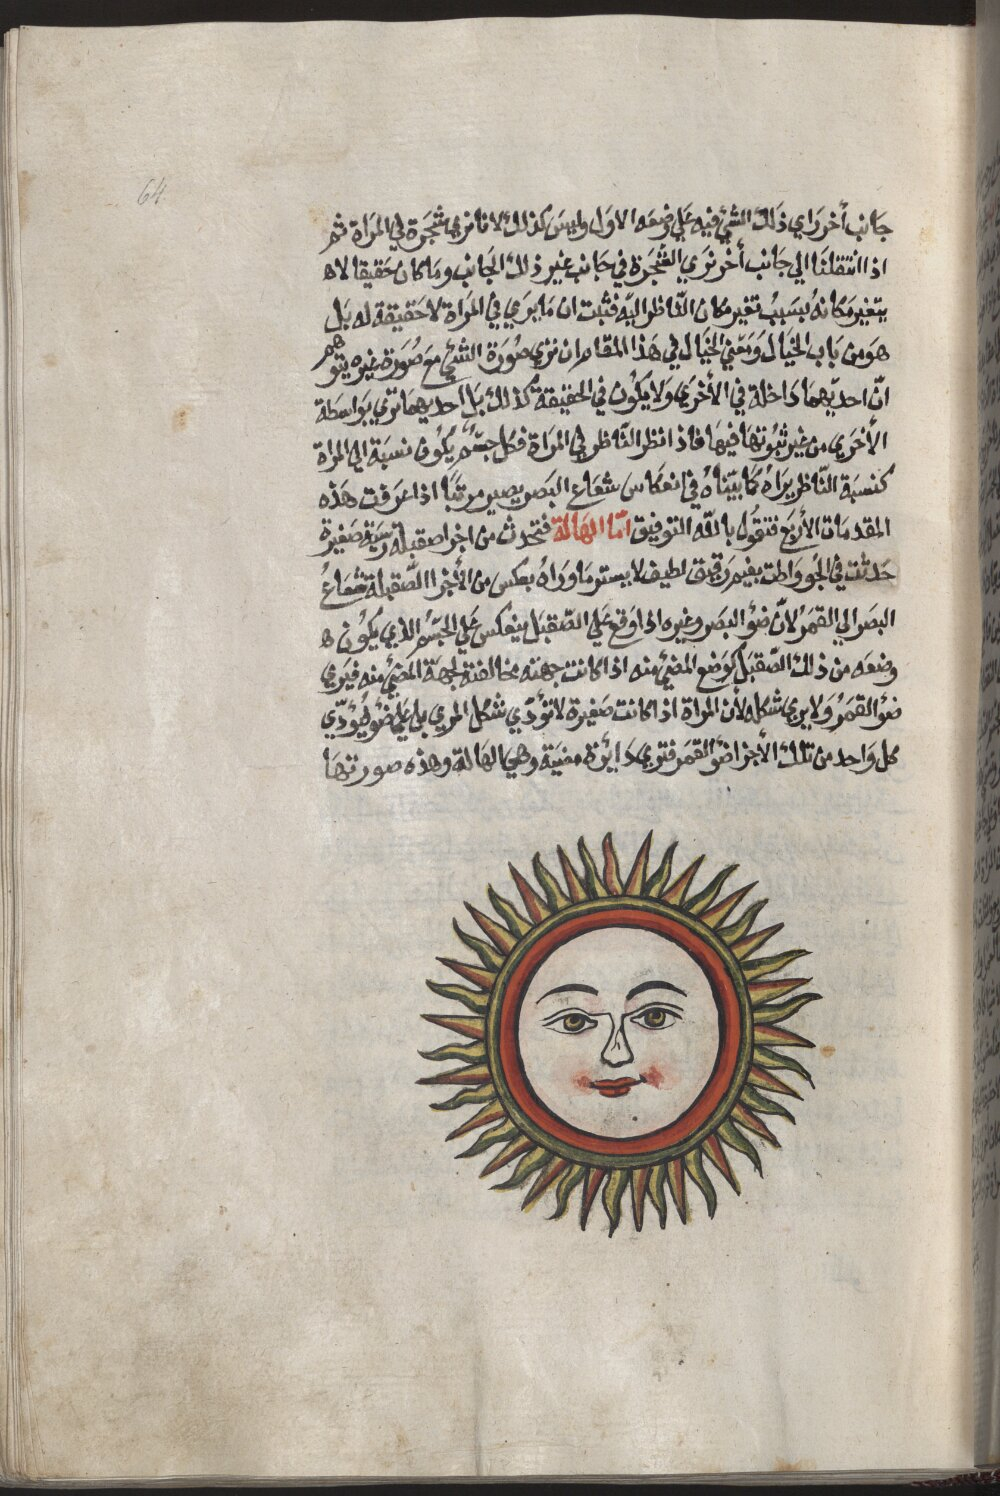 64
جانب أخر راي ذلك الشئ فيه علي وضعه الاول وليس كذلك لانا نري شجرة في المراة ثم
اذا انتقلنا الي جانب أخر نري الشجرة في جانب غير ذلك الجانب وما كان حقيقا لا
يتغير مكانه بسبب تغير مكان الناظر اليه فثبت ان ما يري في المراة لا حقيقة له بل
هو من باب الخيال ومعني الخيال في هذا المقام ان نري صورة الشئ مع صورة غيره يتوهم
انّ احديهما داخلة في الأخري ولا يكون في الحقيقة كذلك بل احديهما تري بواسطة
الأخري من غير ثبوتها فيها فاذ انظر الناظر في المراة فكل جسم يكون نسبة الي المراة
كنسبة الناظر يراه كما بيّناه في انعكاس شعاع البصر يصير مرتبا اذا عرفت هذه
المقدمات الأربع فنقول بالله التوفيق امّا الهالة فتحدث من اجزا صقيلة رشية صغيرة
حدثت في الجو واطت بغيم رقيق لطيف لا يستر ما وراه بعكس من الأجزا الصقيلة شعاع
البصر الي القمر لانّ ضؤ البصر وغيره اذا وقع علي الصقيل ينعكس علي الجسم الذي يكون
وضعه من ذلك الصقيل كوضع المضئ منه اذا كانت جهته مخالفة لجهة المضئ منه فيري
ضؤ القمر ولا يري شكله لأن المراة اذا كانت صغيرة لا تؤدي شكل المري بل علي ضوه فيؤدّي
كل واحد من تلك الأجزا ضؤ القمر فتري دايرة مضيّة وهي الهالة وهذه صورتها